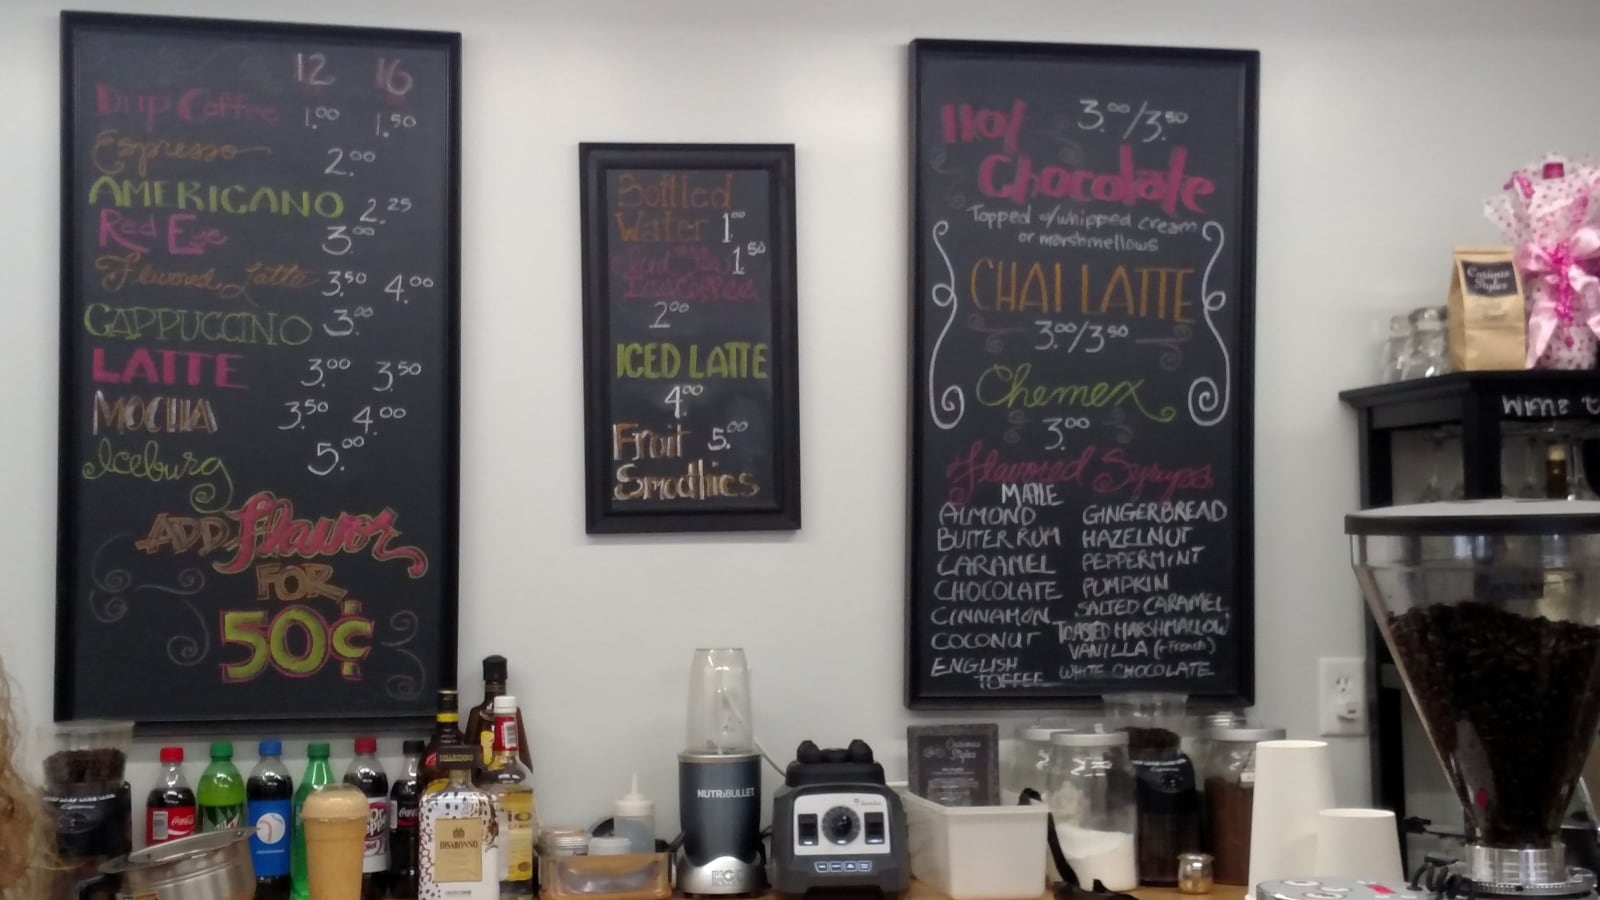 12 16
Drip Coffee 1.00 1.50
Espresso 2.00
AMERICANO 2.25
Red Eye 3.00
Flavored Latte 3.50 4.00
CAPPUCCINO 3.00
LATTE 3.00 3.50
MOCHA 3.50 4.00
Iceburg 5.00
ADD flavor
FOR
50¢
Bottled
Water 1.00
1.50
Icecoffee
2.00
ICED LATTE
4.00
Fruit 5.00
Smoothies
Hot 3.00/3.50
Chocolate
Topped w/whipped cream
or marshmellows
CHAI LATTE
3.00/3.50
Chemex
3.00
Flavored Syrups
MAPLE
ALMOND GINGERBREAD
BUTTER RUM HAZELNUT
CARAMEL PEPPERMINT
CHOCOLATE PUMPKIN
CINNAMON SALTED CARAMEL
COCONUT TOASTED MARSHMALLOW
VANILLA (+French)
ENGLISH WHITE CHOCOLATE
TOFFEE
Curious
Styles
Coca-Cola
DISARONNO
DISARONNO
NUTRIBULLET
Curious
Styles